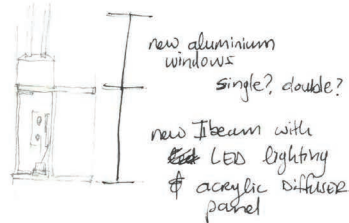 new aluminium
windows
single?, double?
new I beam with
LED lighting
& acrylic DIFFUSER
panel